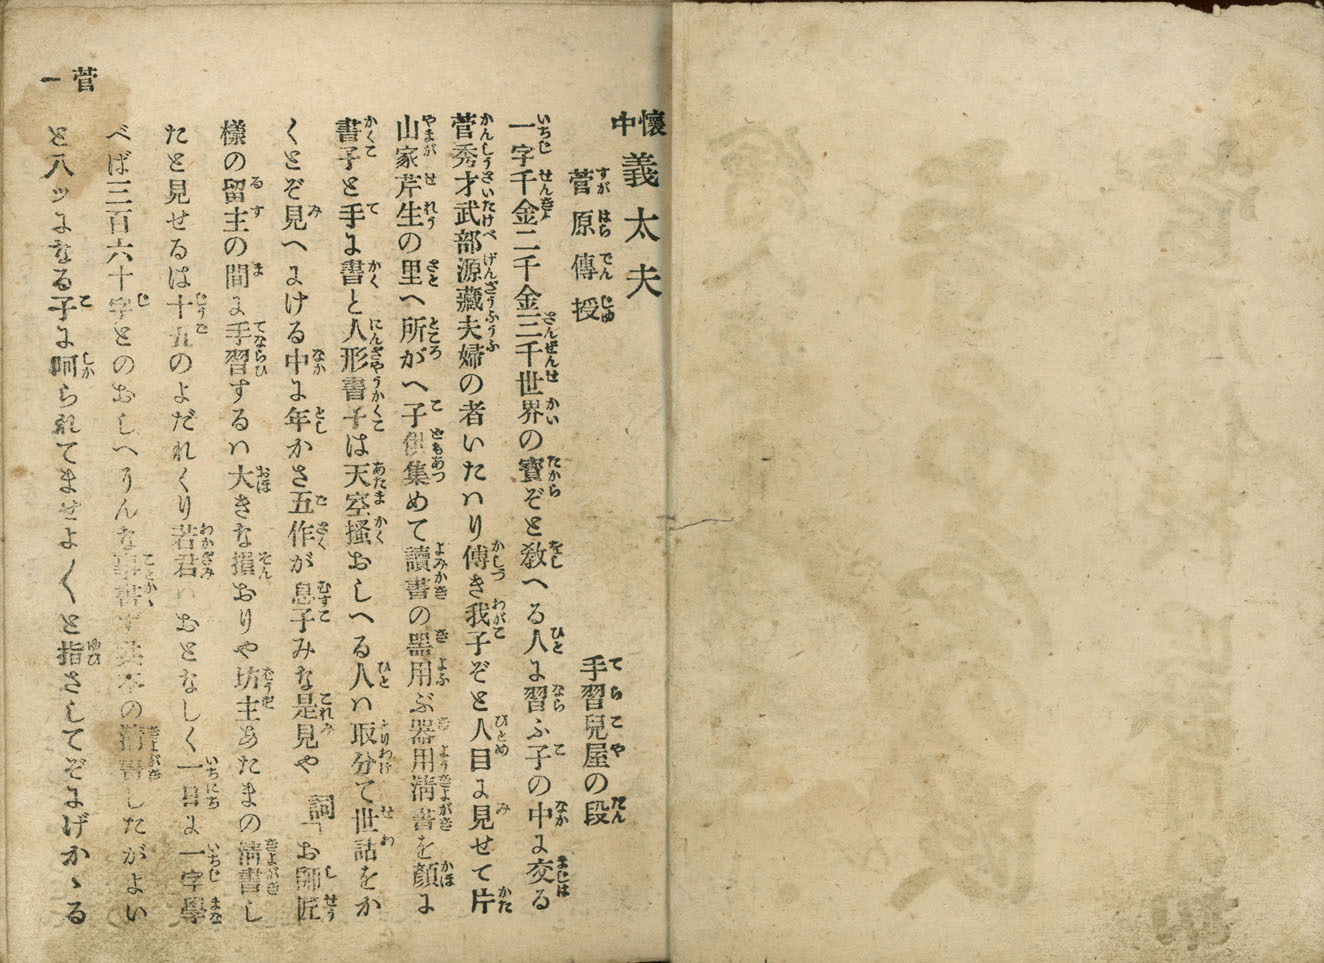 懐中義太夫
菅原傳授
手習兒屋の段
一字千金二千金三千世界の寳ぞと敎へる人に習ふ子の中に交る
菅秀才武部源藏夫婦の者いたハり傅き我子ぞと人目に見せて片
山家芹生の里へ所がへ子供集めて讀書の器用ぶ器用淸書を顏に
書子と手に書と人形書子は天窓搔おしへる人ハ取分て世話をか
くとぞ見へにける中に年かさ五作が息子みな是見や 詞「お師匠
樣の留主の間に手習するハ大きな損おりや坊主あたまの淸書し
たと見せるは十五のよだれくり若君ハおとなしく一日に一字學
べば三百六十字とのおしへそんな事書ず共本の淸書したがよい
と八ッになる子に呵られてませよ〱と指さしてぞにげかゝる
菅 一